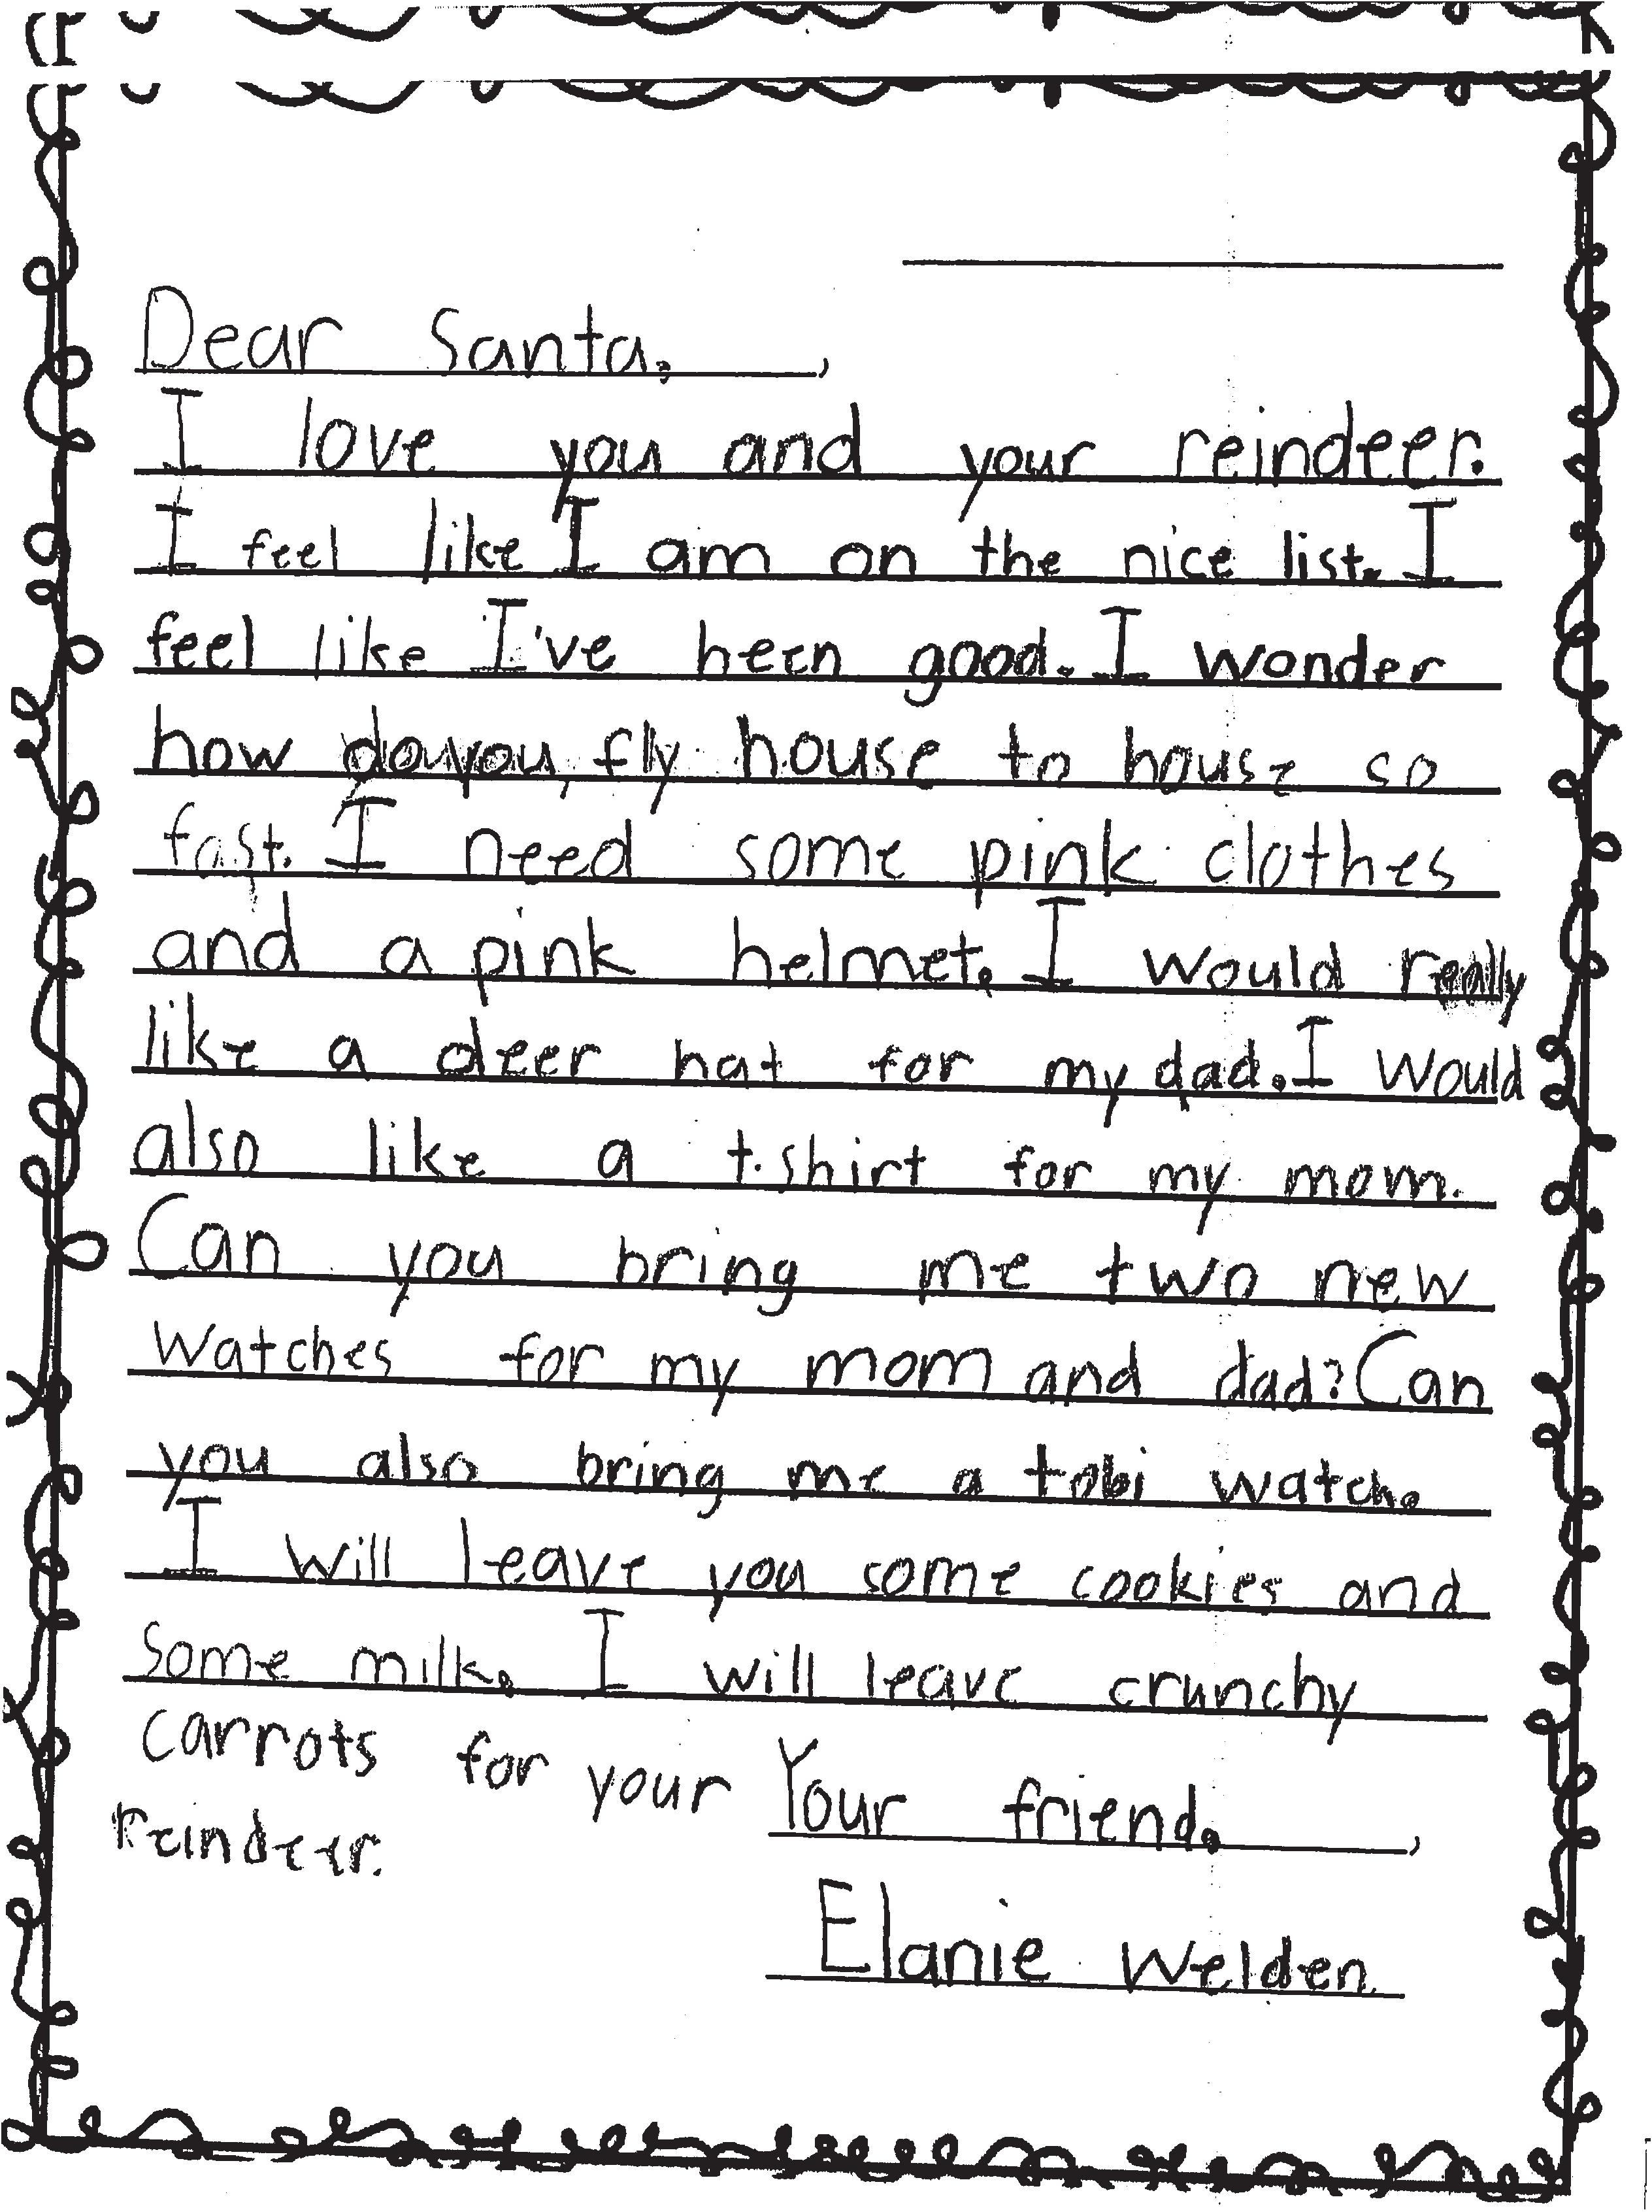 Dear Santa, ,
I love you and your reindeer.
I feel like I am on the nice list. I
feel like I've been good. I wonder
how do you, fly house to house so
fast. I need some pink clothes
and a pink helmet. I would really
like a deer hat for my dad. I would
also like a t.shirt for my mom.
Can you bring me two new
watches for my mom and dad? Can
you also bring me a tobi watch.
I will leave you some cookies and
some milk. I will leave crunchy
carrots for your
reindeer.
Your friend, ,
Elanie Welden